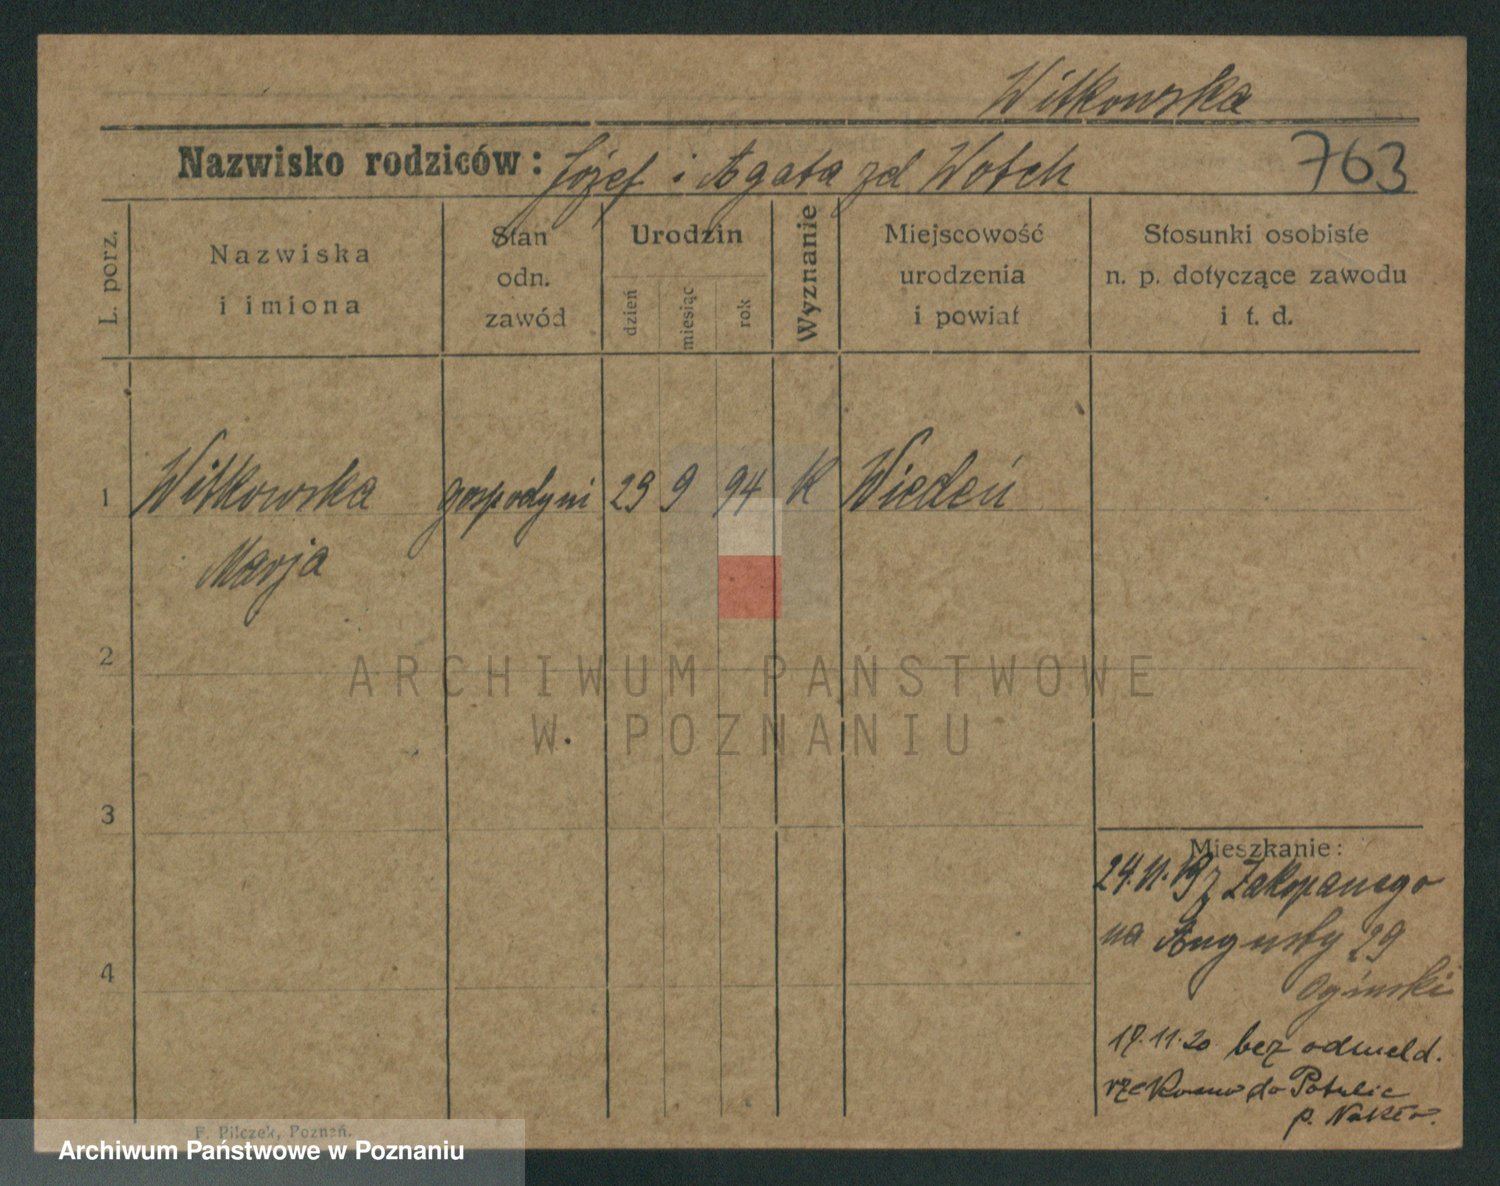 Witkowska
Nazwisko rodziców: Józef i Agata zd Wotch
763
L. porz.
Nazwiska
i imiona
Stan
odn.
zawód
Urodzin
dzień
miesiąc
rok
Wyznanie
Miejscowość
urodzenia
i powiat
Stosunki osobiste
n. p. dotyczące zawodu
i t. d.
1 Witkowska gospodyni 29 9 94 K Wiedeń
Marja
2
3
4
Mieszkanie:
24.11.19 z Zakopanego
na Augusty 29
Ogiński
17.11.20 bez odmeld.
rzekomo do Potulic
p. Nakło.
F. Pilczek, Poznań.
ARCHIWUM PAŃSTWOWE
W POZNANIU
Archiwum Państwowe w Poznaniu